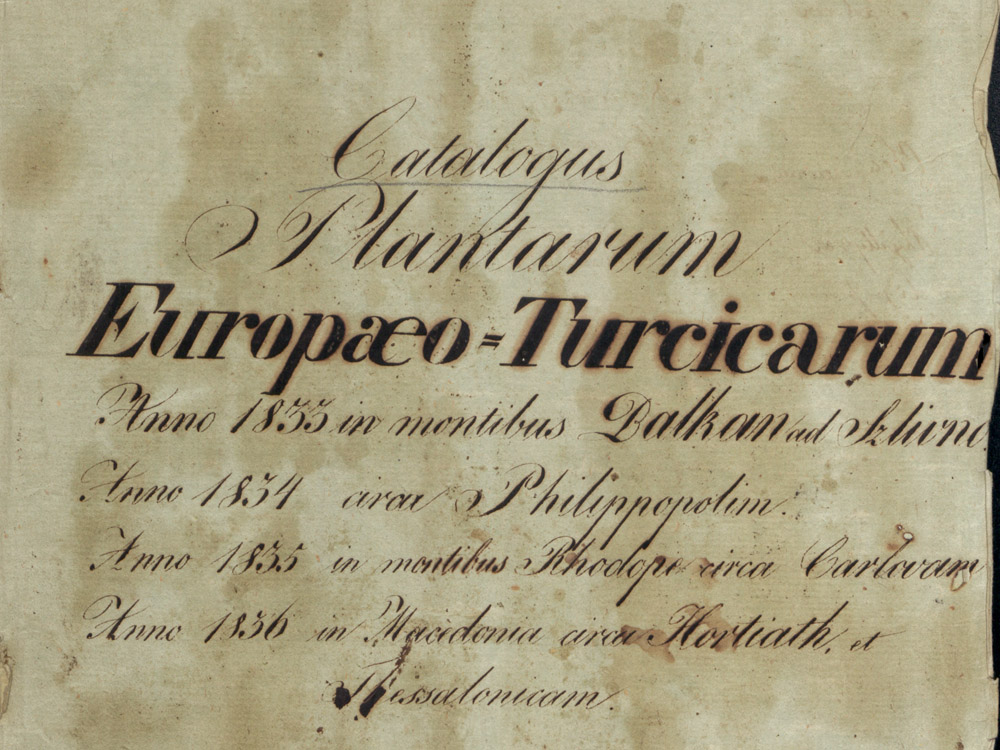 Catalogus
Plantarum
Europæo=Turcicarum
Anno 1833 in montibus Balkan ad Szlivno
Anno 1834 circa Philippopolim.
Anno 1835 in montibus Rhodope circa Carlovam
Anno 1836 in Macedonia circa Hortiath, et
Thessalonicam.